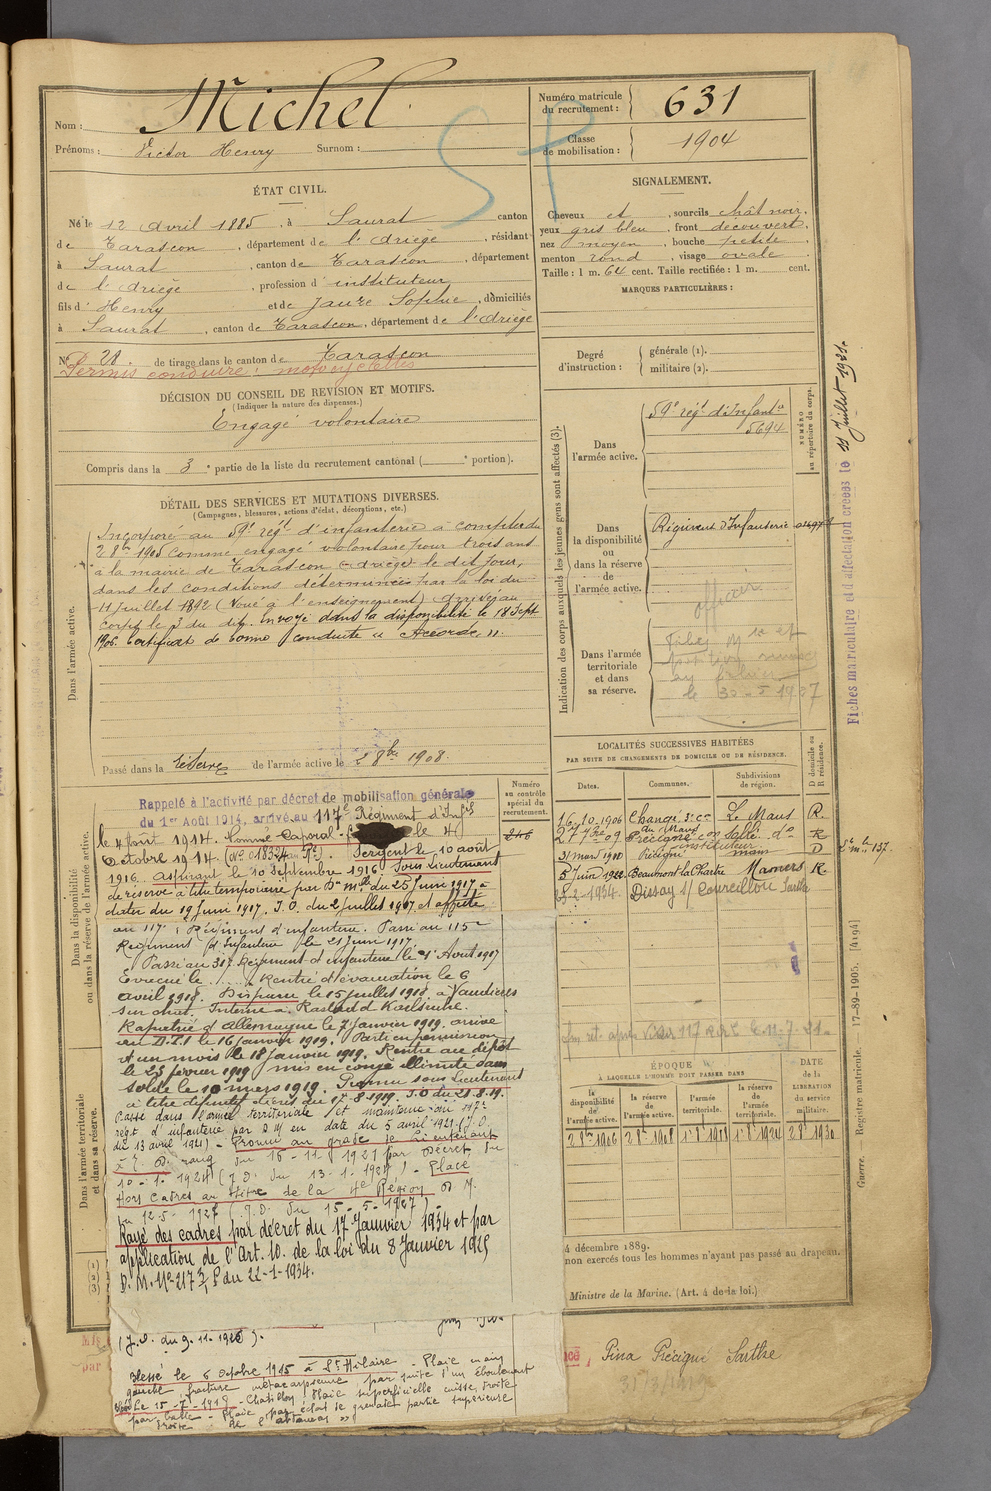 Nom : Michel
Prénoms : Victor Henry Surnom :
Numéro matricule du recrutement : 631
Classe de mobilisation : 1904
ÉTAT CIVIL.
Né le 12 Avril 1885, à Saurat canton
de Tarascon, département de l'Ariège, résidant
à Saurat, canton de Tarascon, département
de l'Ariège, profession d'instituteur
fils d' Henry et de Jauze Sophie, domiciliés
à Saurat, canton de Tarascon, département de l'Ariège
N° 28. de tirage dans le canton de Tarascon
Permis conduire : motocyclettes
DÉCISION DU CONSEIL DE REVISION ET MOTIFS.
(Indiquer la nature des dispenses.)
Engagé volontaire
Compris dans la 3e partie de la liste du recrutement cantonal ( e portion).
SIGNALEMENT.
Cheveux et , sourcils chât noir,
yeux gris bleu , front découvert,
nez moyen , bouche petite ,
menton rond , visage ovale .
Taille : 1 m. 64 cent. Taille rectifiée : 1 m. cent.
MARQUES PARTICULIÈRES :
Degré d'instruction : générale (1).
militaire (2).
DÉTAIL DES SERVICES ET MUTATIONS DIVERSES.
(Campagnes, blessures, actions d'éclat, décorations, etc.)
Dans l'armée active.
Incorporé au 59e régt d'infanterie à compter du
2 8bre 1905 comme engagé volontaire pour trois ans
à la mairie de Tarascon (Ariège) le dit jour,
dans les conditions déterminées par la loi du
11 juillet 1892 (Voué à l'enseignement) Arrivé au
corps le 3 du dit. Envoyé dans la disponibilité le 18 Sept
1906. Certificat de bonne conduite "Accordé".
Passé dans la réserve de l'armée active le 2 8bre 1908.
Indication des corps auxquels les jeunes gens sont affectés (3).
NUMÉRO au répertoire du corps.
Dans l'armée active.
59e régt d'Infantie
5694
Dans la disponibilité ou dans la réserve de l'armée active.
Régiment d'Infanterie
officier
Dans l'armée territoriale et dans sa réserve.
le 30-5 1927
Fiches matriculaire et d'affectation créées le 11 Juillet 1921.
LOCALITÉS SUCCESSIVES HABITÉES
PAR SUITE DE CHANGEMENTS DE DOMICILE OU DE RÉSIDENCE.
Dates. Communes. Subdivisions de région. D domicile ou R résidence.
16.10.1906 Changé Le Mans R.
27 7bre 09 Précigné do R
instituteur
31 mars 1910 Précigné mans D
5 juin 1922 Beaumont-la-Chartre Mamers R.
1934 Dissay s/ Courcillon Sarthe
Numéro au contrôle spécial du recrutement.
246
Dans la disponibilité ou dans la réserve de l'armée active.
Rappelé à l'activité par décret de mobilisation générale
du 1er Août 1914, arrivé au 117e Régiment d'Infie
le 4 Août 1914. Nommé Caporal le 4
Octobre 1914. Sergent le 10 août
1916. aspirant le 10 Septembre 1916 Sous Lieutenant
de réserve à titre temporaire par Dn mlle du 25 Juin 1917 à
dater du 19 Juin 1917. J.O. du 2 Juillet 1917 et affecté
au 117e Régiment d'infanterie. Passé au 115e
Régiment d'Infanterie le 21 Juin 1917
Passé au 317 Régiment d'infanterie le 21 Août 1917
Evacué le Rentré d'évacuation le 6
avril 1918. Disparu le 15 juillet 1918 à Vaudières
sur Interné à Rastadt Karlsruhe.
Rapatrié d'Allemagne le 7 Janvier 1919. arrivé
au D.T.I le 16 Janvier 1919. Parti en permission
d'un mois le 18 Janvier 1919. Rentré au dépôt
le 23 février 1919 mis en congé illimité sans
solde le 10 mars 1919. Promu sous Lieutenant
à titre définitif décret du 17.8.1919. J.O du 21.8.19.
Dans l'armée territoriale et dans sa réserve.
Passé dans l'armée territoriale et maintenu au 117e
régt d'infanterie par D.M en date du 5 avril 1921 (J.O.
du 13 avril 1921) - Promu au grade de Lieutenant
à T. D. rang du 16-11-1921 par décret du
10-1-1924 (J.O. du 13-1-1924) - Placé
Hors Cadres au titre de la 4e Région D.M.
du 12-5-1927 (J.O. du 15-5-1927) -
Rayé des cadres par décret du 17 Janvier 1934 et par
application de l'Art. 10. de la loi du 8 Janvier 1925
D. M. No 217 du 22-1-1934.
(J.O. du 9-11-1926).
Blessé le 6 Octobre 1915 à St Hilaire - Plaie main
gauche, fracture métacarpienne par suite d'un éboulement
Blessé le 15-7-1918 - Chatillon. Plaie superficielle cuisse droite
par balle - Plaie par éclat de grenade partie supérieure
droite de
ÉPOQUE
À LAQUELLE L'HOMME DOIT PASSER DANS
la disponibilité de l'armée active. la réserve de l'armée active. l'armée territoriale. la réserve de l'armée territoriale.
DATE de la LIBÉRATION du service militaire.
2 8bre 1906 2 8bre 1908 1er 8bre 1918 1er 8bre 1924 2 8bre 1930
4 décembre 1889.
non exercés tous les hommes n'ayant pas passé au drapeau.
Ministre de la Marine. (Art. 4 de la loi.)
Guerre. — Registre matricule. — 17-89-1905. [4194]
Précigné Sarthe